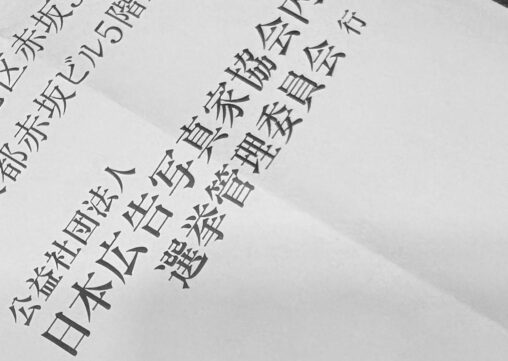 区赤坂
都赤坂ビル5階
公益社団法人
日本広告写真家協会内
選挙管理委員会 行